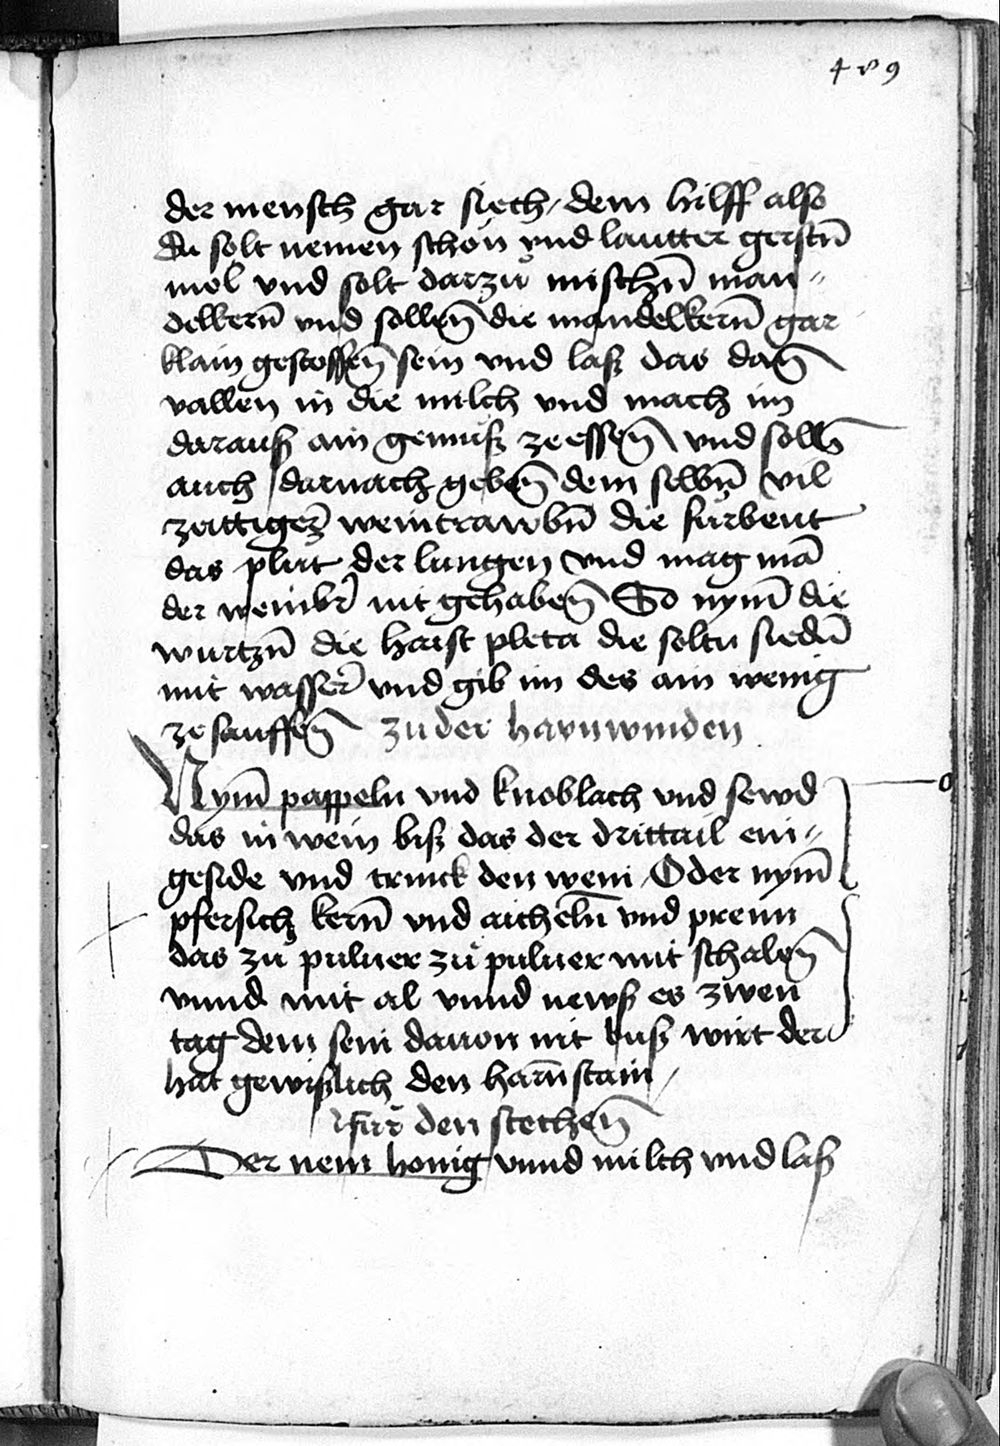 489
der mensch gar siech / dem hilff also
du solt nemen schön vnd lautter gerstn̄
mel vnd solt darzů mischn̄ man-
delkern̄ vnd sollen̄ die mandelkern̄ gar
klain gestossen̄ sein vnd laß das dan̄
vallen in die milch vnd mach im
darauß ain gemüß ze essen̄ vnd solt
auch darnach geben̄ dem selbn̄ vil
zeittiger weintrawbn̄ die fürbent
das plut der lungen vnd mag mā
der weinbr̄ nit gehaben̄ So nym̄ die
wurtzn̄ die haist pleta die soltu siedn̄
mit wasser vnd gib im des ain wenig
ze sauffen̄ zu der harnwinden
Nym̄ pappeln vnd knoblach vnd sewd
das in wein biß das der drittail ein-
geside vnd trinck den wein / Oder nym̄
pfersich kern̄ vnd aicheln̄ vnd prenn
das zu puluer zů puluer mit schalen̄
vnnd mit al vnnd news es zwen
tag dem sein dauon nit buß wirt der
hat gewißlich den harn̄stain /
für den stechen̄
Der nem honig vnnd milch vnd laß